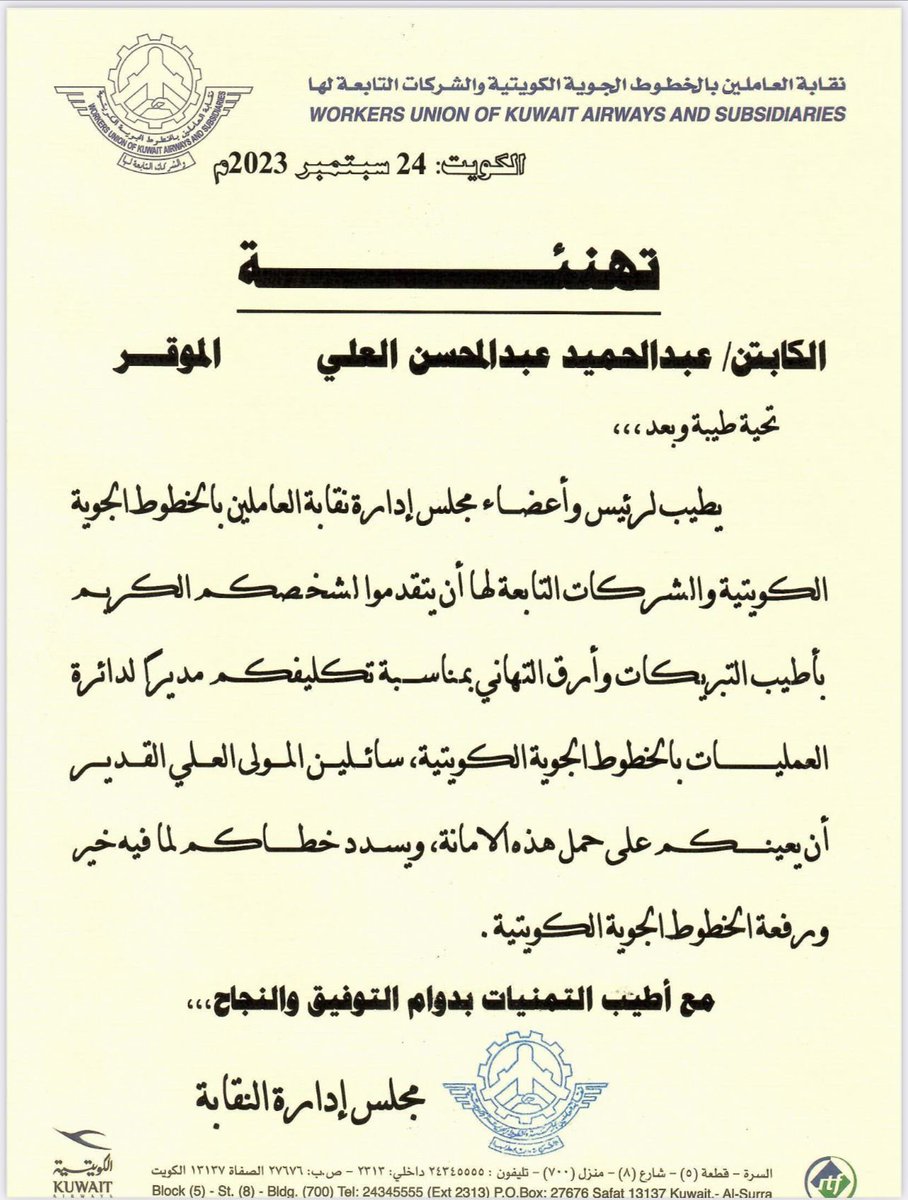 نقابة العاملين بالخطوط الجوية الكويتية والشركات التابعة لها
WORKERS UNION OF KUWAIT AIRWAYS AND SUBSIDIARIES
نقابة العاملين بالخطوط الجوية الكويتية
WORKERS UNION OF KUWAIT AIRWAYS AND SUBSIDIARIES
والشركات التابعة لها
الكويت: 24 سبتمبر 2023م
تهنئـــــــــــة
الكابتن/ عبدالحميد عبدالمحسن العلي الموقـــر
تحية طيبة وبعد ،،،
يطيب لرئيس وأعضــاء مجلس إدارة نقابة العاملين بالخطوط الجوية
الكويتية والشركات التابعة لها أن يتقدموا لشخصكم الكريم
بأطيب التبريكات وأرق التهاني بمناسبة تكليفكم مديراً لدائرة
العمليــــات بالخطوط الجوية الكويتية، سائلين المولى العلي القدير
أن يعينــكم على حمل هذه الامانة، ويسدد خطــاكم لما فيه خير
ورفعة الخطوط الجوية الكويتية .
مع أطيب التمنيات بدوام التوفيق والنجاح،،،
مجلس إدارة النقابة
الكويتية
KUWAIT
AIRWAYS
السرة – قطعة (٥) – شارع (٨) – منزل (٧٠٠) – تليفون : ٢٤٣٤٥٥٥٥ داخلي: ٢٣١٣ – ص.ب: ٢٧٦٧٦ الصفاة ١٣١٣٧ الكويت
Block (5) - St. (8) - Bldg. (700) Tel: 24345555 (Ext 2313) P.O.Box: 27676 Safat 13137 Kuwait.- Al-Surra
itf